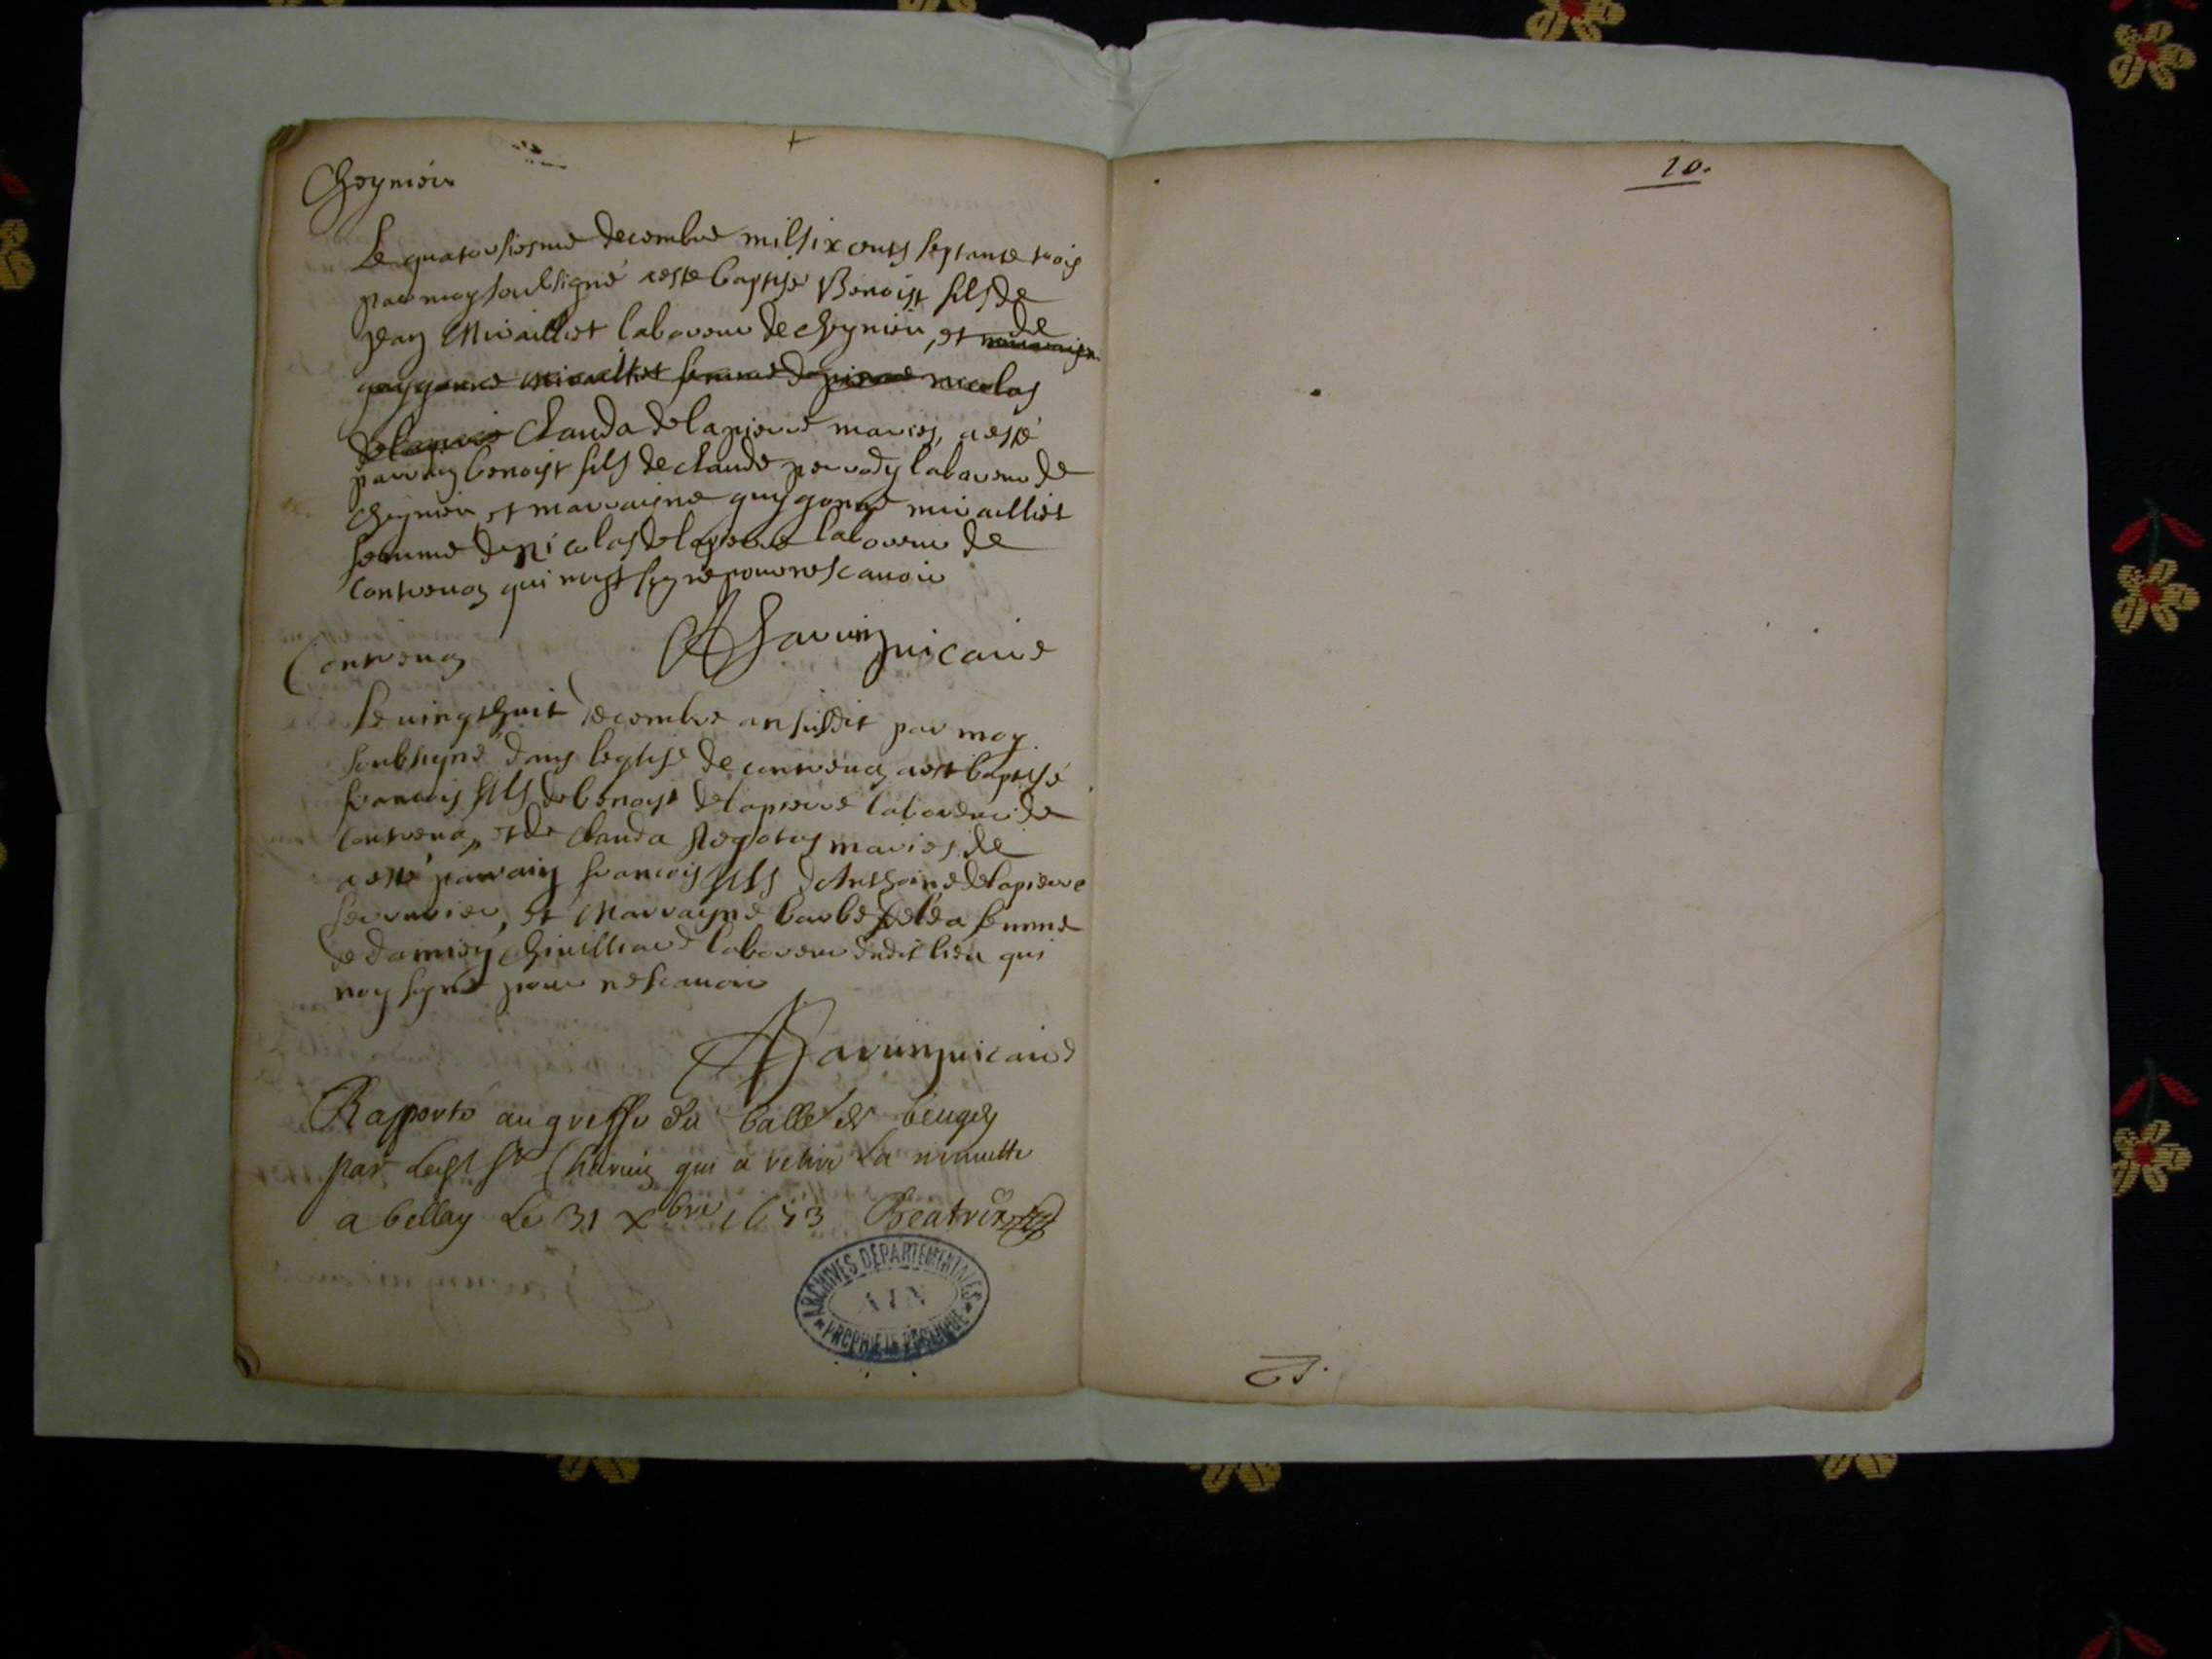 Cheynieu
Le quatorsiesme decembre mil six cents septante trois
par moy soubsigné a esté baptisé Benoist fils de
Jean Miraillet laboureur de Cheynieu, et de
guygonne miraillet femme de pierre nicolas
delapierre Clauda delapierre mariés, a esté
parrain benoist fils de claude laboureur de
cheynieu et marrayne guygonne mirailliet
femme de nicolas delapierre laboureur de
Contrevoz qui n'ont signé pour ne scavoir
Charvin vicaire
Contrevoz
Le vingt huit decembre an susdit par moy
soubsigné dans leglise de contrevoz a esté baptisé
francois fils de benoist delapierre laboureur de
Contrevoz, et de Clauda mariés de
a esté parrain francois fils d'Anthoine delapierre
serrurier, et Marrayne barbe femme
de damien laboureur dudit lieu qui
n'ont signé pour ne scavoir
Charvin vicaire
Rapporté au greffe du balle de beugey
par Charvin qui a retiré la minutte
a bellay Le 31 Xbre 1673 Beatrix
ARCHIVES DEPARTEMENTALES
AIN
PROPRIETE PUBLIQUE
10.